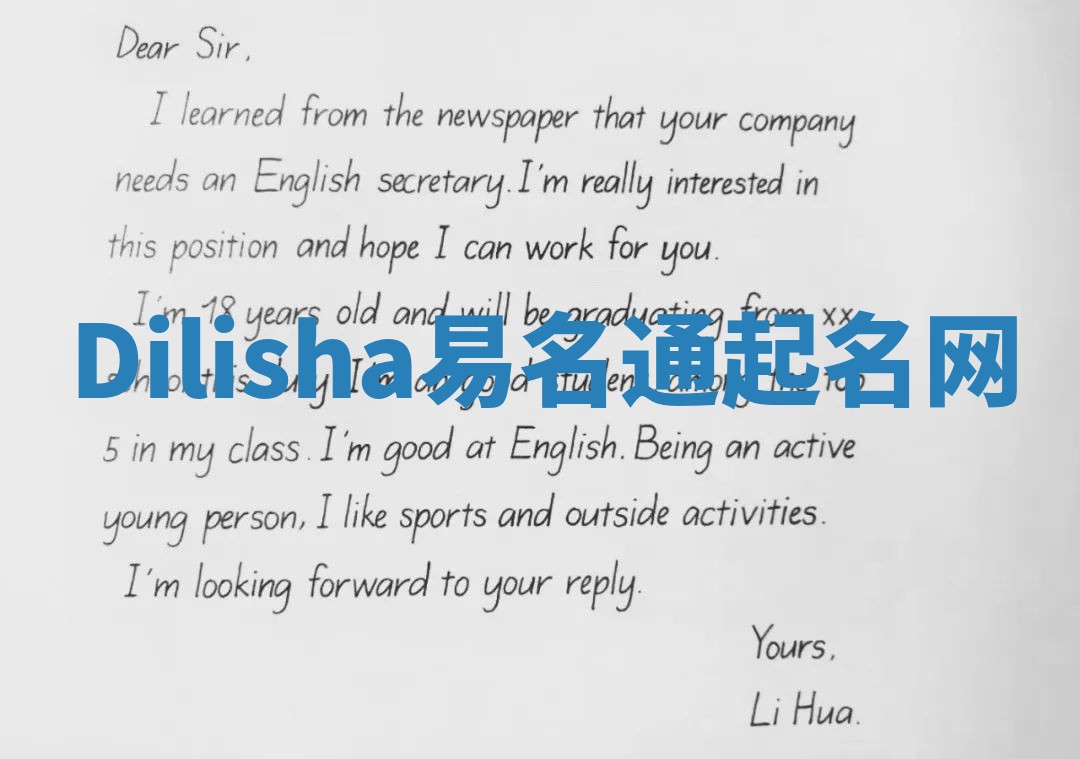 Dear Sir,
I learned from the newspaper that your company
needs an English secretary. I'm really interested in
this position and hope I can work for you.
I'm 18 years old and will be graduating from xx
Dilisha易名通起名网
this July. I'm a good student among the top
5 in my class. I'm good at English. Being an active
young person, I like sports and outside activities.
I'm looking forward to your reply.
Yours,
Li Hua.